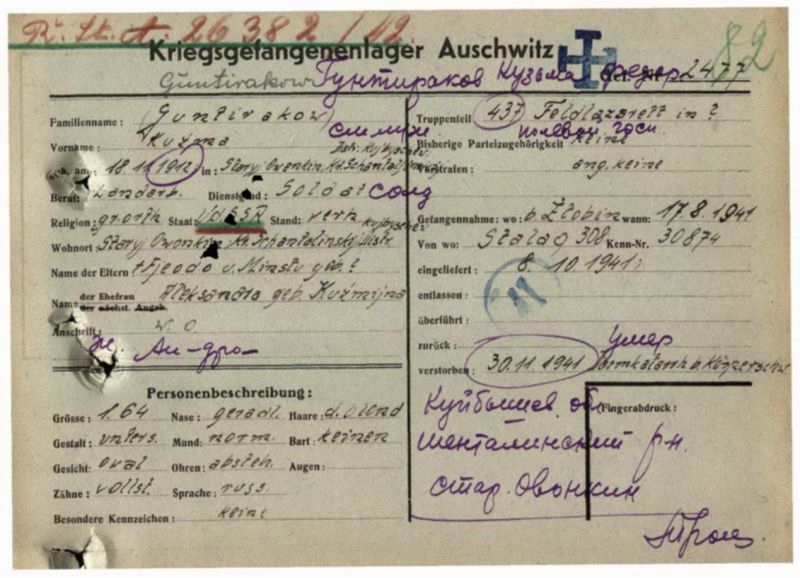 R. St. A. 26382/12
82
Kriegsgefangenenlager Auschwitz
Guntirakow Гунтираков Кузьма Федор Gef. Nr. 2477
Familienname: Guntirakow
Vorname: Kuźma
Geb. am: 18.11.1912 in: Staryj Owonkin
Beruf: Landarb. Dienstgrad: Soldat солд
Religion: gr. orth. Staat: UdSSR Stand: verh
Wohnort: Staryj Owonkin Kr. Schantalinskij
Name der Eltern: geb. ?
Name der Ehefrau Aleksandra geb. Kuźmijna
der nächst. Angeh.
Anschrift: w. o
Personenbeschreibung:
Grösse: 1.64 Nase: geradl. Haare: d. blond
Gestalt: unters. Mund: norm. Bart: keinen
Gesicht: oval Ohren: absteh. Augen:
Zähne: vollst. Sprache: russ.
Besondere Kennzeichen: keine
Truppenteil: 437 Feldlazarett in ?
полевой госп.
Bisherige Parteizugehörigkeit keine
Vorstrafen: ang. keine
Gefangennahme: wo: b. Złobin wann: 17.8.1941
Von wo: Stalag 308 Kenn-Nr. 30874
eingeliefert: 8.10.1941
entlassen:
überführt:
zurück: умер
verstorben: 30.11.1941
Fingerabdruck:
Куйбышев. об
Шенталинский р-н.
стар. Овонкин